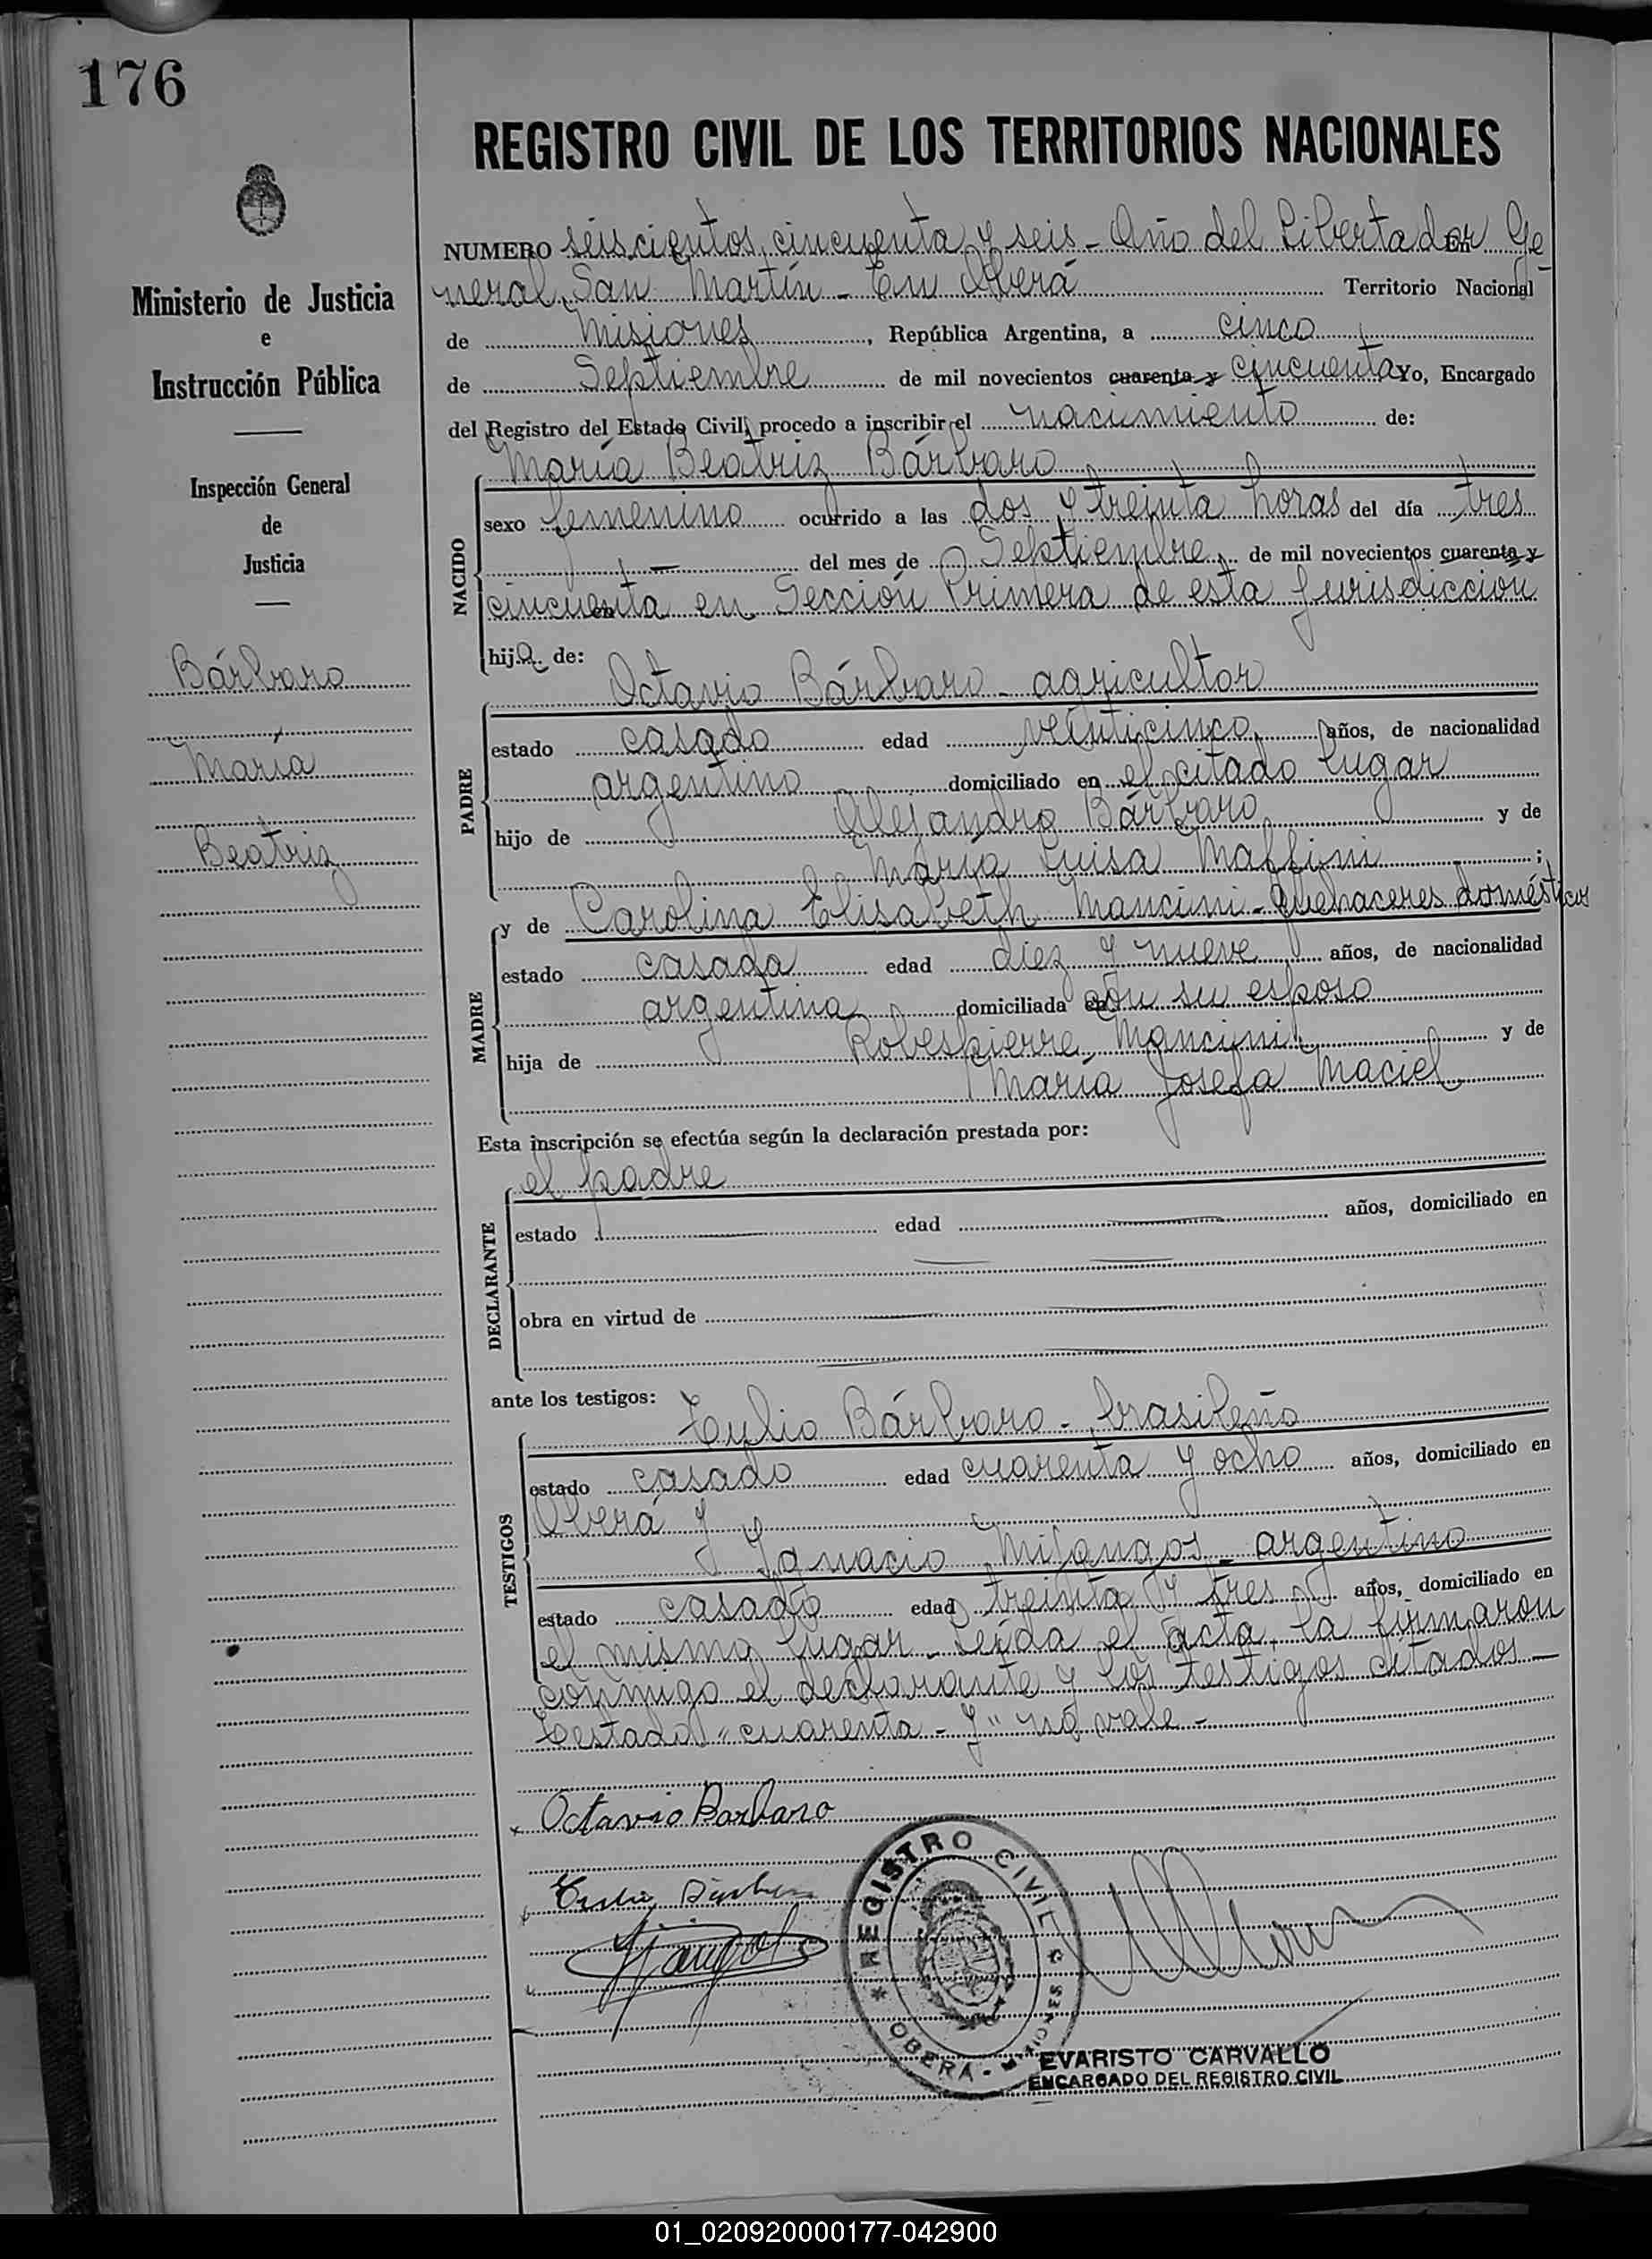 176
REGISTRO CIVIL DE LOS TERRITORIOS NACIONALES
Ministerio de Justicia
e
Instrucción Pública
Inspección General
de
Justicia
Bárbaro
María
Beatriz
NUMERO seiscientos cincuenta y seis - Año del Libertador Ge
neral San Martín - En Oberá Territorio Nacional
de Misiones, República Argentina, a cinco
de Septiembre de mil novecientos cuarenta y cincuenta Yo, Encargado
del Registro del Estado Civil, procedo a inscribir el nacimiento de:
María Beatriz Bárbaro
NACIDO
sexo femenino ocurrido a las dos y treinta horas del día tres
del mes de Septiembre de mil novecientos cuarenta y
cincuenta en Sección Primera de esta jurisdicción
hija de:
Octavio Bárbaro - agricultor
PADRE
estado casado edad veinticinco años, de nacionalidad
argentino domiciliado en el citado lugar
hijo de Alejandro Bárbaro y de
María Luisa Maffini;
y de Carolina Elisabeth Mancini - Quehaceres domésticos
MADRE
estado casada edad diez y nueve años, de nacionalidad
argentina domiciliada con su esposo
hija de Robespierre Mancini y de
María Josefa Maciel
Esta inscripción se efectúa según la declaración prestada por:
el padre
DECLARANTE
estado edad años, domiciliado en
obra en virtud de
ante los testigos:
Bárbaro - brasileño
TESTIGOS
estado casado edad cuarenta y ocho años, domiciliado en
Oberá y
Ignacio - argentino
estado casado edad treinta y tres años, domiciliado en
el mismo lugar - Leída el acta, la firmaron
conmigo el declarante y los testigos citados -
Testado "cuarenta - y" no vale -
Octavio Barbaro
REGISTRO CIVIL
OBERÁ - MISIONES
EVARISTO CARVALLO
ENCARGADO DEL REGISTRO CIVIL
01_020920000177-042900